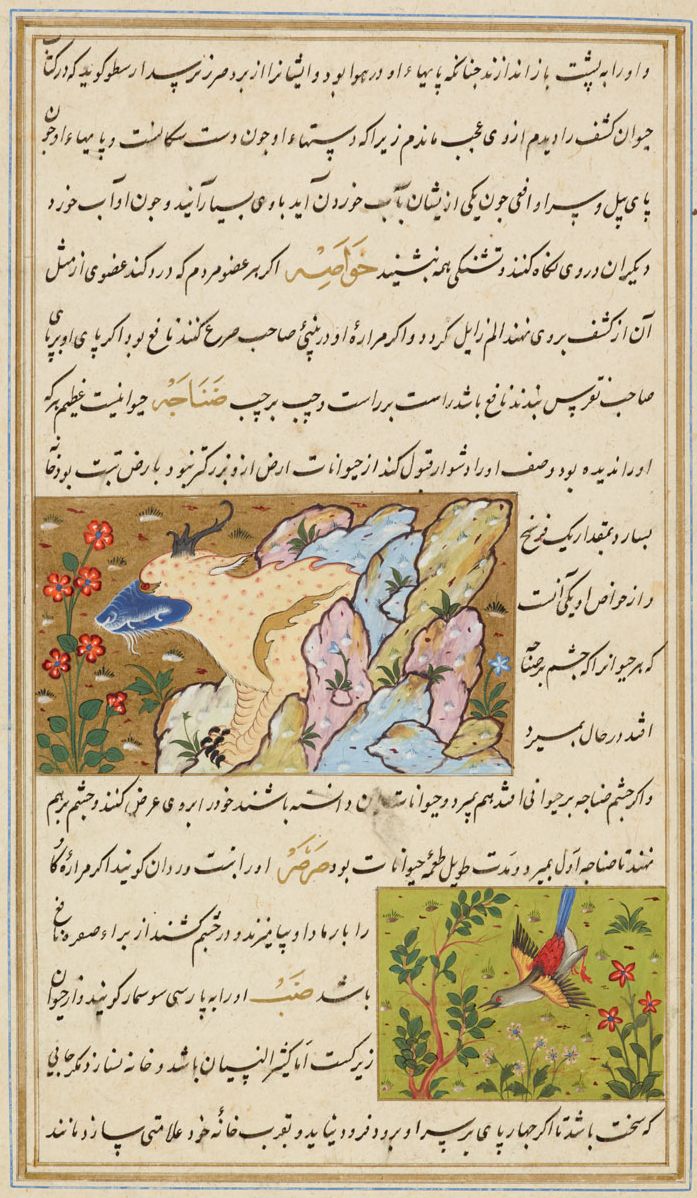 و او را به پشت باز اندازند چنانکه پایهاء او در هوا بود و ایشانرا از برد ضرر نرسد ارسطو گوید که در کتاب
حیوان کشف را دیدم از وی عجب ماندم زیرا که دستهاء او چون دست سگانست و پایهاء او چون
پای پیل و سر او افعی چون یکی ازیشان بآب خوردن آید با وی بسیار آیند و چون او آب خورد
دیگران در وی نگاه کنند و تشنگی همه بنشیند خواصه اگر هر عضو مردم که درد کند عضوی از مثل
آن از کشف بر وی نهند الم زایل گردد و اگر مرارهٔ او در بینئ صاحب صرع کنند نافع بود اگر پای او بر پای
صاحب نقرس بندند نافع باشد راست بر راست و چپ بر چپ ضناجه حیوانیست عظیم هر که
او را ندیده بود وصف او را دشوار قبول کند از حیوانات ارض ازو بزرگتر نبود بارض تبت بود خانه
بسازد بمقدار یک فرسنخ
و از خواص او یکی آنست
که هر حیوانرا که چشم بر ضناجه
افتد در حال بمیرد
و اگر چشم ضناجه بر حیوانی افتد هم بمیرد و حیوانات دانسته باشند خود را بر وی عرض کنند و چشم بر هم
نهند تا ضناجه اول بمیرد و مدت طویل طعمهٔ حیوانات بود او راست وردان گویند اگر مرارهٔ
را با رماد او بیامیزند و در چشم کشند از براء نافع
باشد ضب او را به پارسی سوسمار گویند و از حیوان
زیرکست اما کثیر النسیان باشد و خانه نسازد مگر جایی
که سخت باشد تا اگر چهارپای بر سر او برود فرود نیاید و بقرب خانهٔ خود علامتی سازد مانند